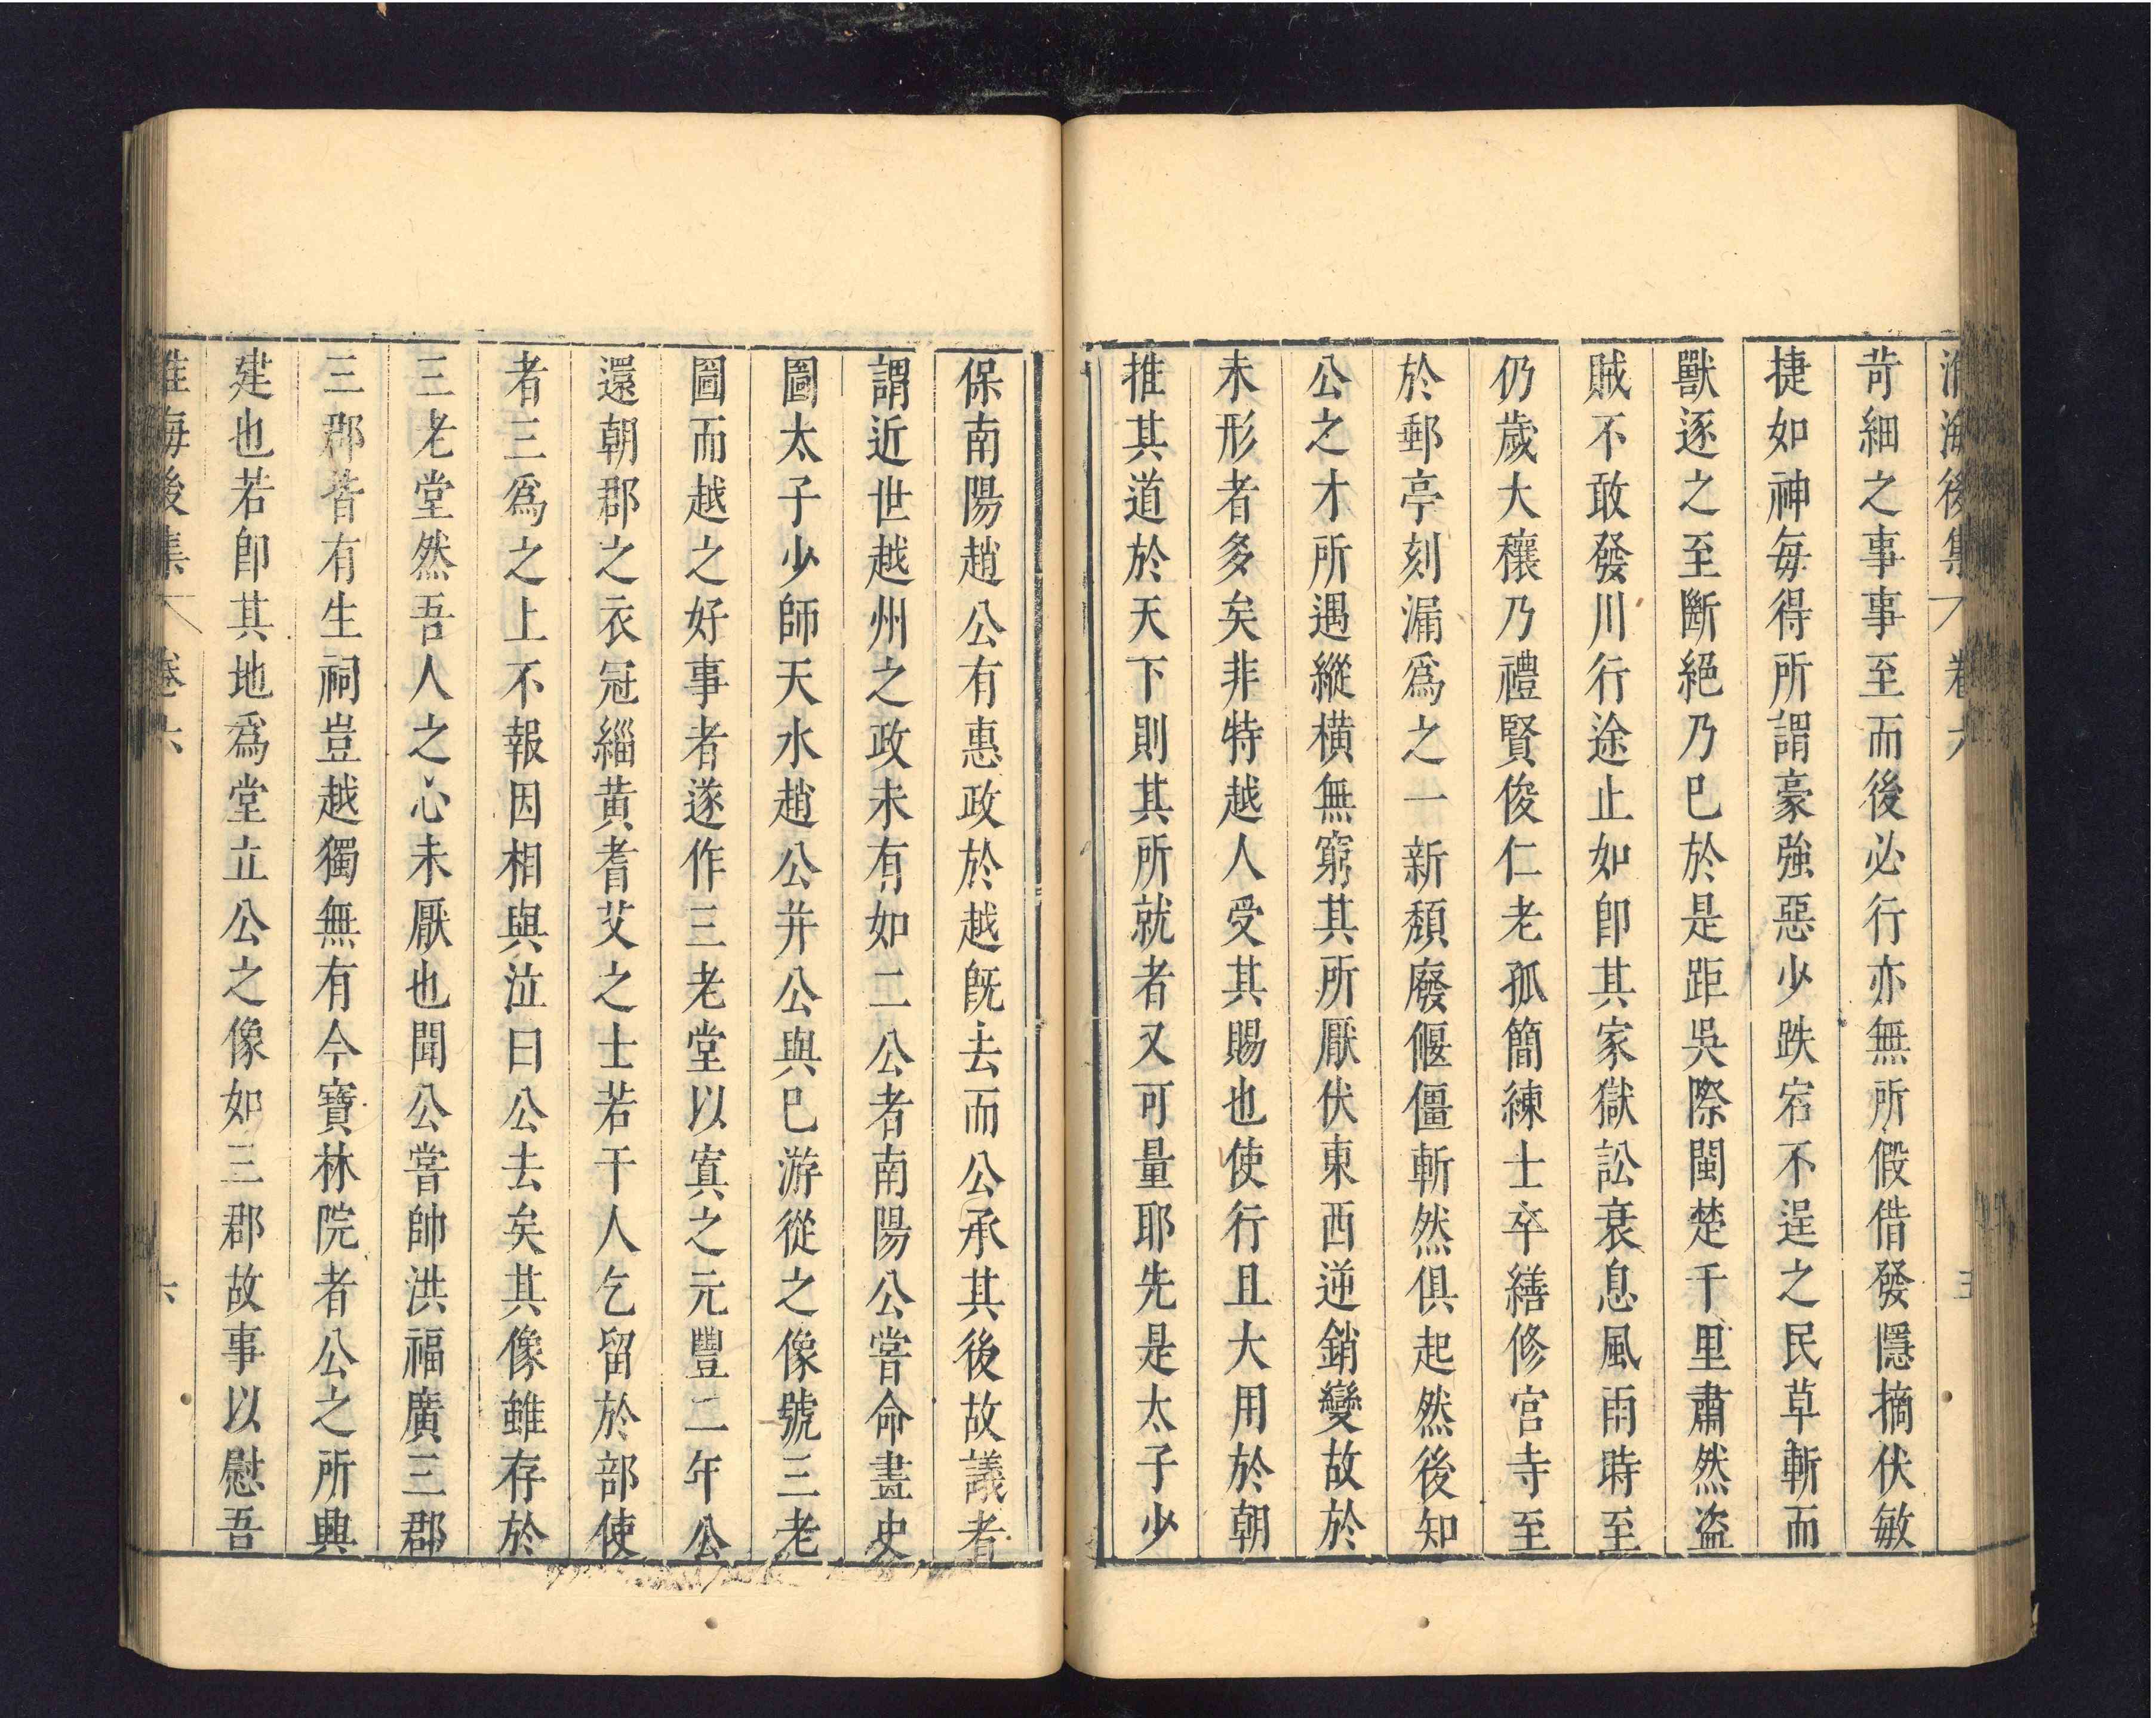 淮海後集 卷六 五
苛細之事事至而後必行亦無所假借發隱摘伏敏
捷如神每得所謂豪強惡少跌宕不逞之民草斬而
獸逐之至斷絕乃巳於是距吳際閩楚千里肅然盗
賊不敢發川行途止如卽其家獄訟衰息風雨時至
仍歲大穰乃禮賢俊仁老孤簡練士卒繕修官寺至
於郵亭刻漏爲之一新頽廢偃僵斬然俱起然後知
公之才所遇縱橫無窮其所厭伏東西逆銷變故於
未形者多矣非特越人受其賜也使行且大用於朝
推其道於天下則其所就者又可量耶先是太子少
保南陽趙公有惠政於越旣去而公承其後故議者
謂近世越州之政未有如二公者南陽公嘗命畫史
圖太子少師天水趙公并公與巳游從之像號三老
圖而越之好事者遂作三老堂以寘之元豐二年公
還朝郡之衣冠緇黄耆艾之士若干人乞留於部使
者三爲之上不報因相與泣曰公去矣其像雖存於
三老堂然吾人之心未厭也聞公嘗帥洪福廣三郡
三郡皆有生祠豈越獨無有今寶林院者公之所興
建也若卽其地爲堂立公之像如三郡故事以慰吾
淮海後集 卷六 六